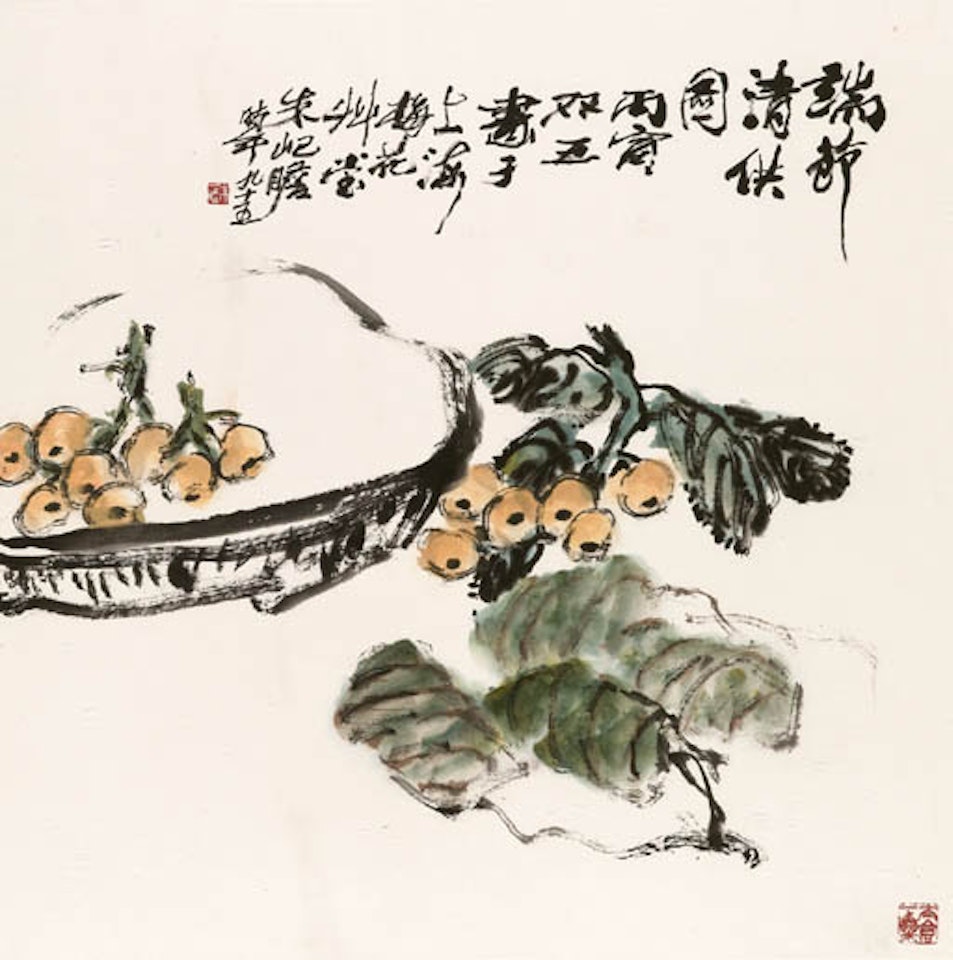 端節
清供
圖
丙寅
双五
畫于
上海
梅花
艸堂
朱屺瞻
時年九十五